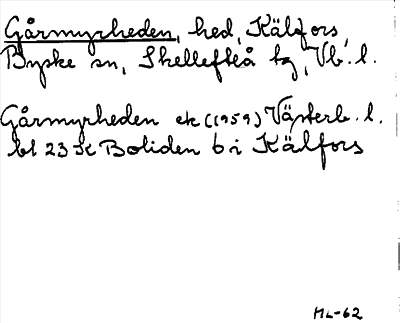 Gårmyrheden, hed, Kälfors,
Byske sn, Skellefteå tg, Vb. l.
Gårmyrheden ek (1959) Västerb. l.
bl 23 K Boliden 6 i Kälfors
ML-62